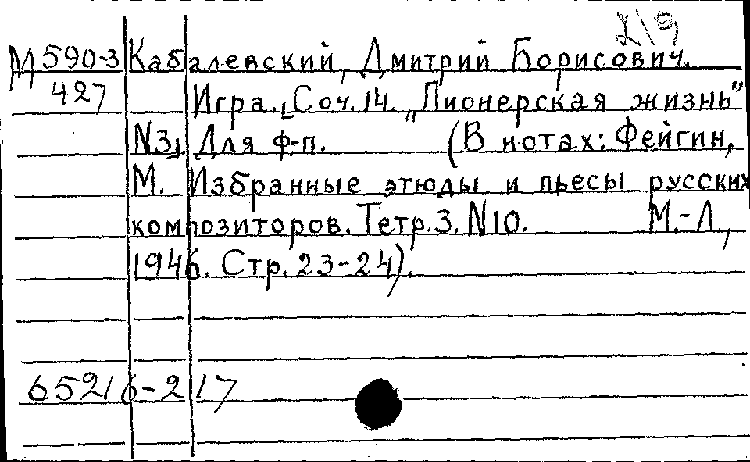 219
М 590-3 Кабалевский, Дмитрий Борисович.
427 Игра. [Соч. 14. „Пионерская жизнь"
N3] Для ф-п. (В нотах: Фейгин,
М. Избранные этюды и пьесы русских
композиторов. Тетр. 3. N10. М.-Л.,
1946. Стр. 23-24).
65216-217